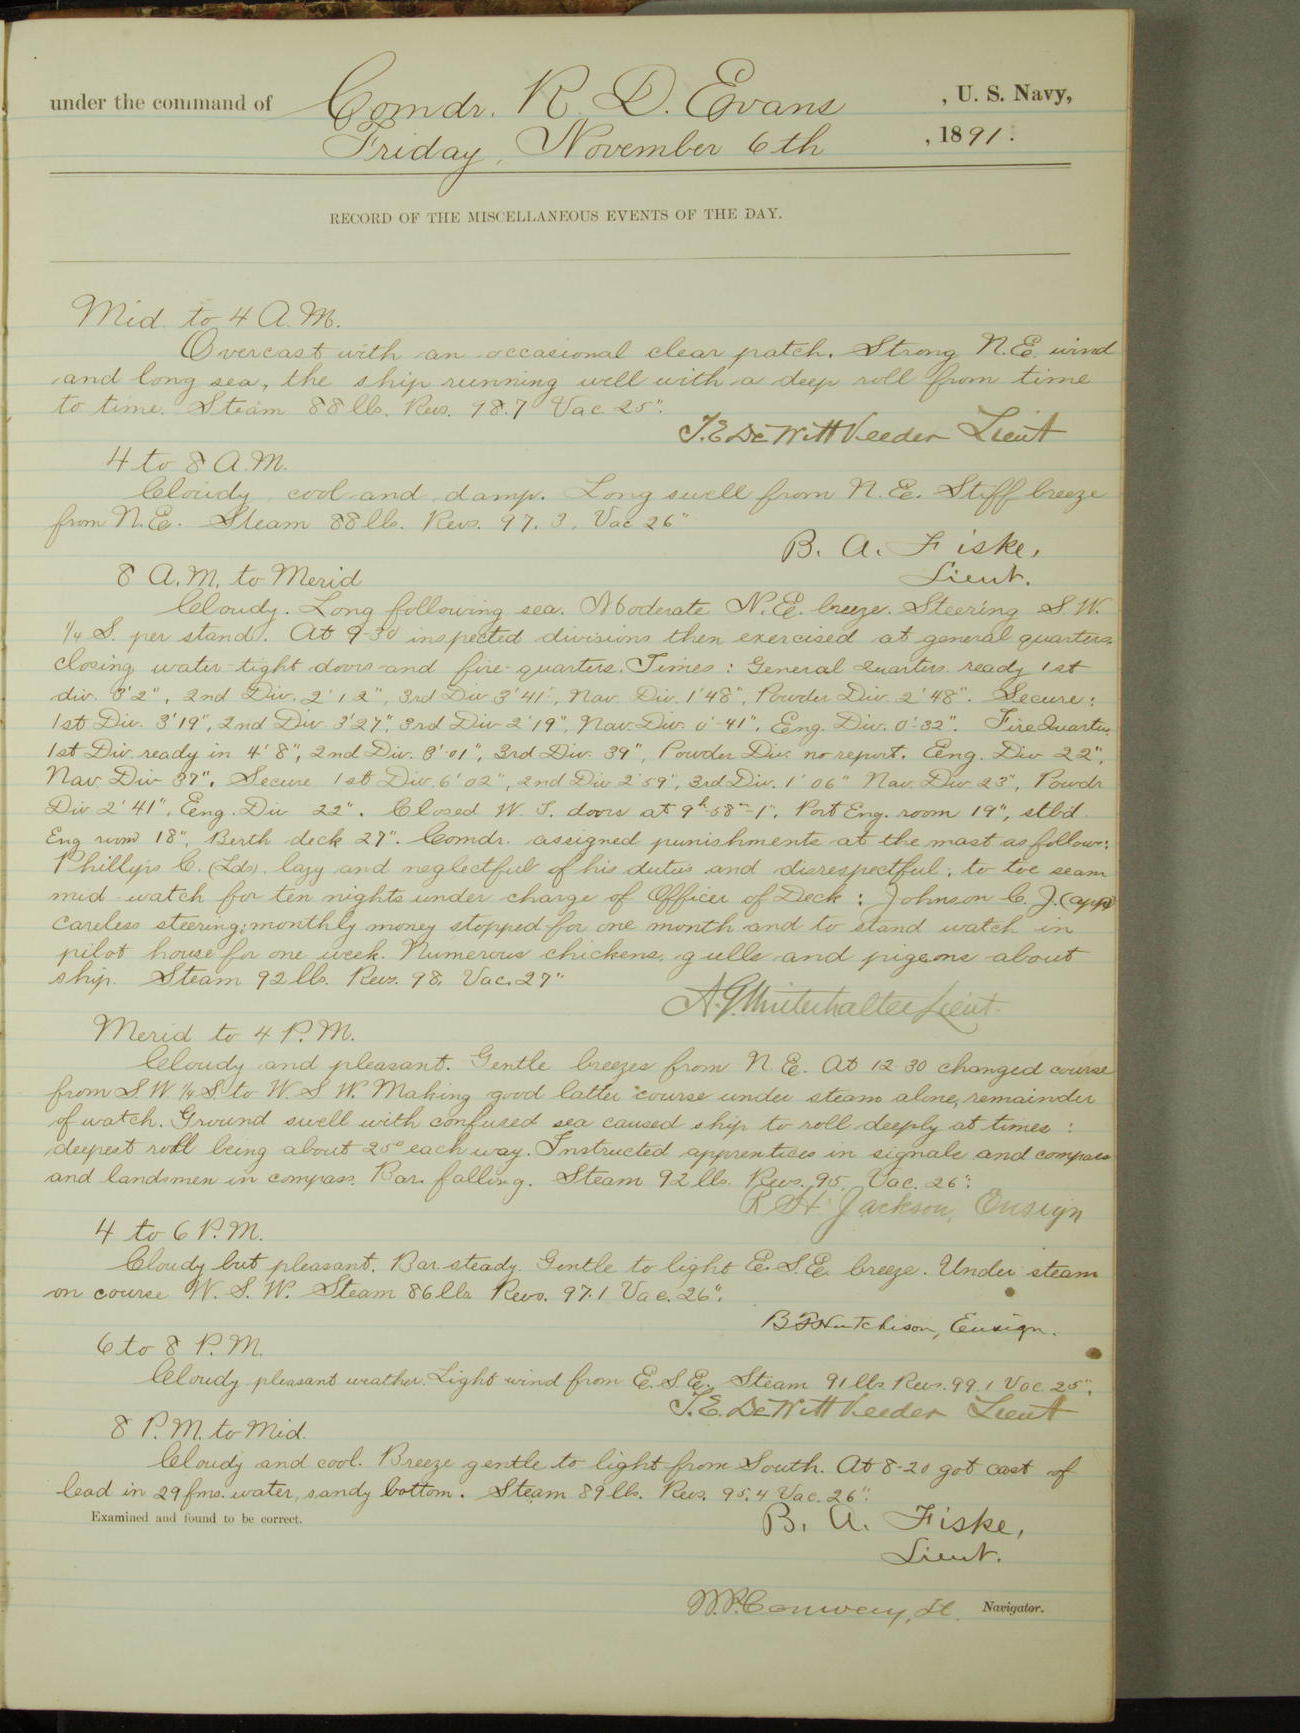 under the command of Comdr. R. D. Evans , U. S. Navy,
Friday, November 6th , 1891.
RECORD OF THE MISCELLANEOUS EVENTS OF THE DAY.
Mid. to 4 A.M.
Overcast with an occasional clear patch. Strong N.E. wind
and long sea, the ship running well with a deep roll from time
to time. Steam 88 lbs. Revs. 98.7 Vac. 25".
T.E. DeWitt Veeder Lieut
4 to 8 A.M.
Cloudy, cool and damp. Long swell from N.E. Stiff breeze
from N.E. Steam 88 lbs. Revs. 97.3. Vac 26"
B. A. Fiske,
Lieut.
8 A.M. to Merid
Cloudy. Long following sea. Moderate N.E. breeze. Steering S.W.
1/4 S. per stand. At 9-30 inspected divisions then exercised at general quarters,
closing water-tight doors and fire-quarters. Times: General Quarters ready 1st
div. 3'2", 2nd Div. 2'12", 3rd Div 3'41", Nav. Div. 1'48", Powder Div. 2'48". Secure:
1st Div. 3'19", 2nd Div 3'27", 3rd Div 2'19", Nav. Div. 0'-41", Eng. Div. 0'-32". Fire Quarters
1st Div. ready in 4'8", 2nd Div. 3'01", 3rd Div. 39", Powder Div. no report. Eng. Div 22",
Nav. Div 37". Secure 1st Div. 6'02", 2nd Div 2'59", 3rd Div. 1'06" Nav. Div 23", Powdr
Div 2'41", Eng. Div 22". Closed W. T. doors at 9h-58m-1s. Port Eng. room 19", stbd.
Eng room 18", Berth deck 27". Comdr. assigned punishments at the mast as follows:
Phillips C. (Lds) lazy and neglectful of his duties and disrespectful; to toe seam
mid-watch for ten nights under charge of Officer of Deck: Johnson C. J. (app)
careless steering; monthly money stopped for one month and to stand watch in
pilot house for one week. Numerous chickens, gulls and pigeons about
ship. Steam 92 lbs. Revs. 98. Vac. 27"
A.G. Winterhalter Lieut.
Merid to 4 P.M.
Cloudy and pleasant. Gentle breezes from N.E. At 12-30 changed course
from S.W. 1/4 S. to W.S.W. Making good latter course under steam alone, remainder
of watch. Ground swell with confused sea caused ship to roll deeply at times:
deepest roll being about 25° each way. Instructed apprentices in signals and compass
and landsmen in compass. Bar. falling. Steam 92 lbs. Revs. 95. Vac. 26".
R H Jackson, Ensign
4 to 6 P.M.
Cloudy but pleasant. Bar. steady. Gentle to light E.S.E. breeze. Under steam
on course W. S. W. Steam 86 lbs Revs. 97.1 Vac. 26".
B F Hutchison, Ensign.
6 to 8 P.M.
Cloudy pleasant weather. Light wind from E.S.E. Steam 91 lbs Revs. 99.1 Vac. 25".
T.E. DeWitt Veeder Lieut
8 P.M. to Mid.
Cloudy and cool. Breeze gentle to light from South. At 8-20 got cast of
lead in 29 fms. water, sandy bottom. Steam 89 lbs. Revs. 95.4 Vac. 26".
Examined and found to be correct.
B. A. Fiske,
Lieut.
W.P. Conway, Lt. Navigator.